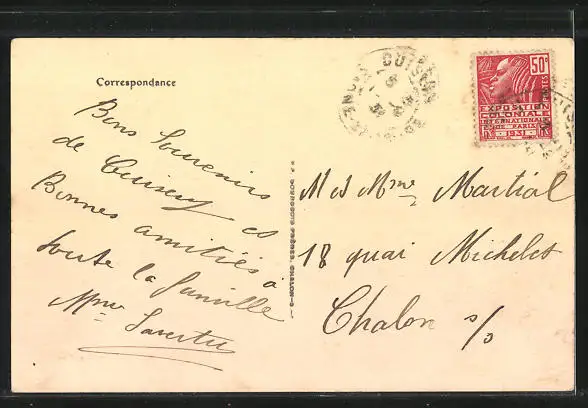 Correspondance
Bons Souvenirs
de Cuisery et
Bonnes amitiés à
toute la famille
Mme
M et Mme Martial
18 quai Michelet
Chalon s/s
BOURGEOIS FRÈRES, CHALON-S-S
CUISERY
50c
POSTES
EXPOSITION
COLONIALE
INTERNATIONALE
PARIS
1931